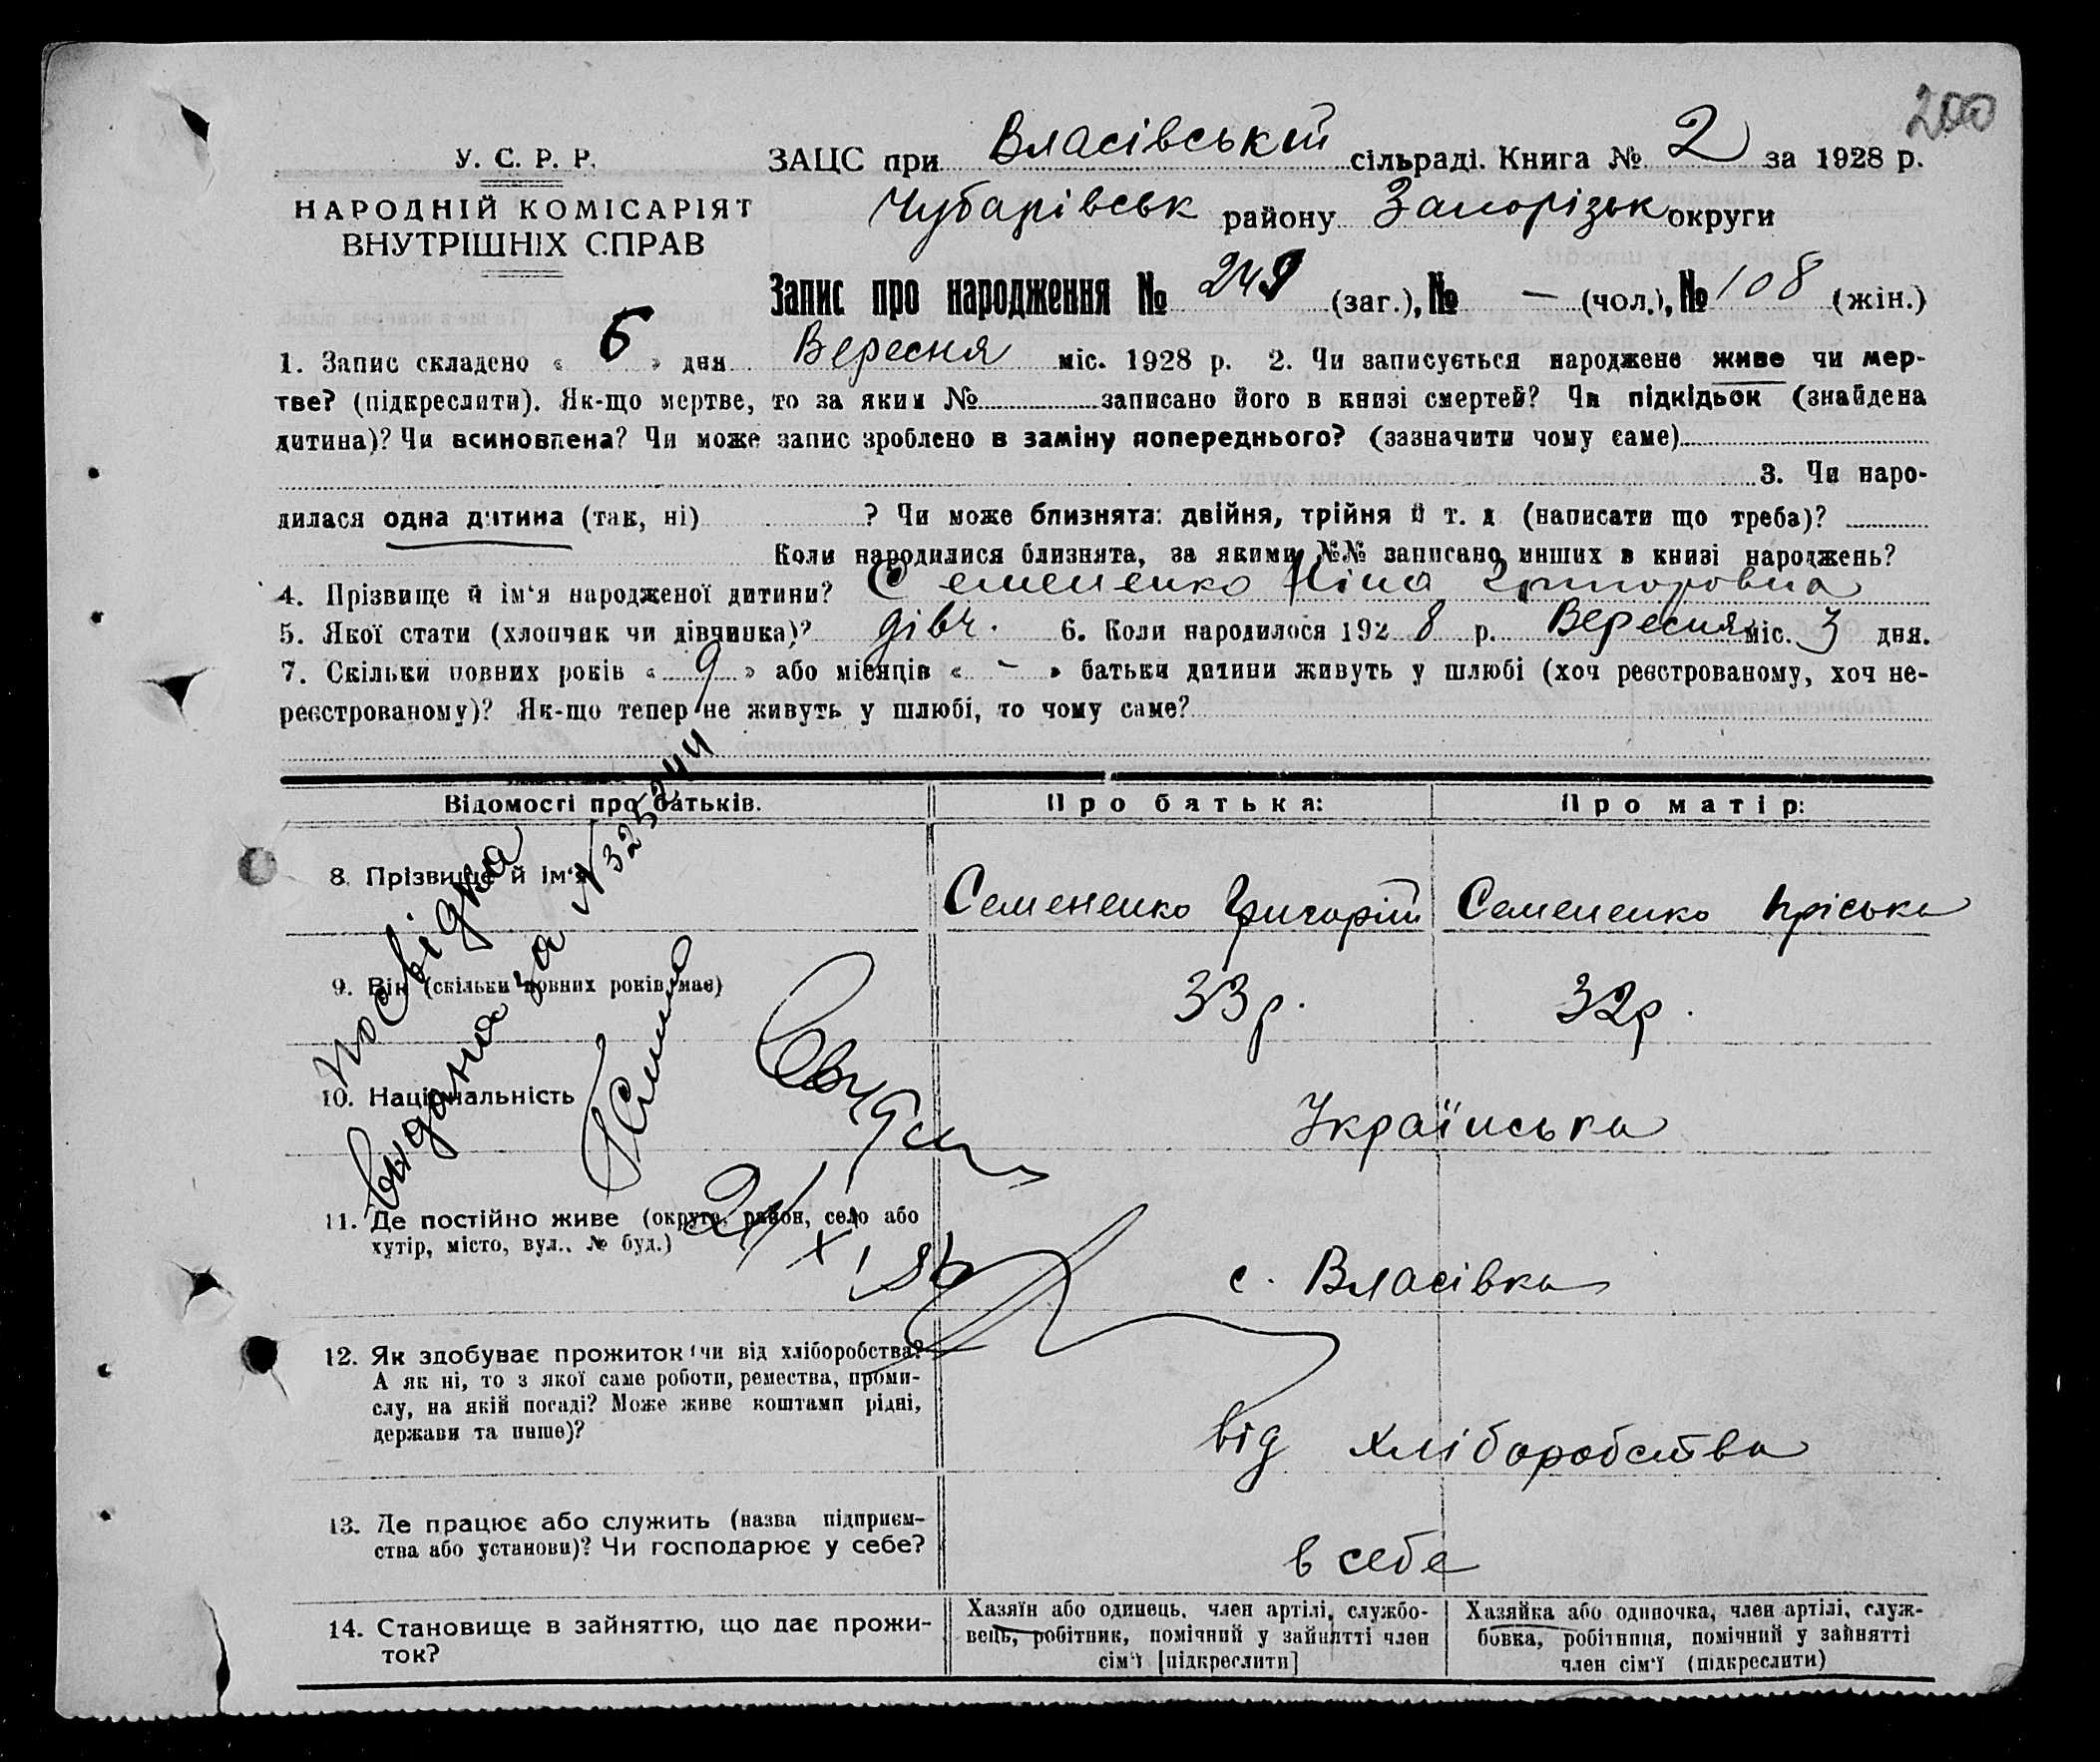 200
У. С. Р. Р.
НАРОДНІЙ КОМІСАРІЯТ
ВНУТРІШНІХ СПРАВ
ЗАЦС при Власівській сільраді. Книга № 2 за 1928 р.
Чубарівськ району Запорізьк округи
Запис про народження № 249 (заг.), № — (чол.), № 108 (жін.)
1. Запис складено « 6 » дня Вересня міс. 1928 р. 2. Чи записується народжене живе чи мер-
тве? (підкреслити). Як-що мертве, то за яким № записано його в книзі смертей? Чи підкідьок (знайдена
дитина)? Чи всиновлена? Чи може запис зроблено в заміну попереднього? (зазначити чому саме)
3. Чи наро-
дилася одна дитина (так, ні) ? Чи може близнята: двійня, трійня й т. д (написати що треба)?
Коли народилися близнята, за якими №№ записано инших в книзі народжень?
4. Прізвище й ім‘я народженої дитини? Семененко Ніна Григоровна
5. Якої стати (хлопчик чи дівчинка)? дівч. 6. Коли народилося 1928 р. Вересня міс. 3 дня.
7. Скільки повних років « 9 » або місяців « - » батьки дитини живуть у шлюбі (хоч реєстрованому, хоч не-
реєстрованому)? Як-що тепер не живуть у шлюбі, то чому саме?
Відомості про батьків. Про батька: Про матір:
8. Прізвище й ім‘я Семененко Григорій Семененко Пріська
9. Вік (скільки повних років має) 33 р. 32 р.
посвідка
видана за №
10. Національність Українська
11. Де постійно живе (округа, район, село або
хутір, місто, вул., № буд.) с. Власівка
12. Як здобуває прожиток (чи від хліборобства?
А як ні, то з якої саме роботи, ремества, проми-
слу, на якій посаді? Може живе коштами рідні,
держави та инше)? від хліборобства
13. Де працює або служить (назва підприєм-
ства або установи)? Чи господарює у себе? в себе
14. Становище в зайняттю, що дає прожи-
ток?
Хазяїн або одинець, член артілі, службо-
вець, робітник, помічний у зайнятті член
сім‘ї [підкреслити]
Хазяйка або одиночка, член артілі, служ-
бовка, робітниця, помічний у зайнятті
член сім‘ї (підкреслити)